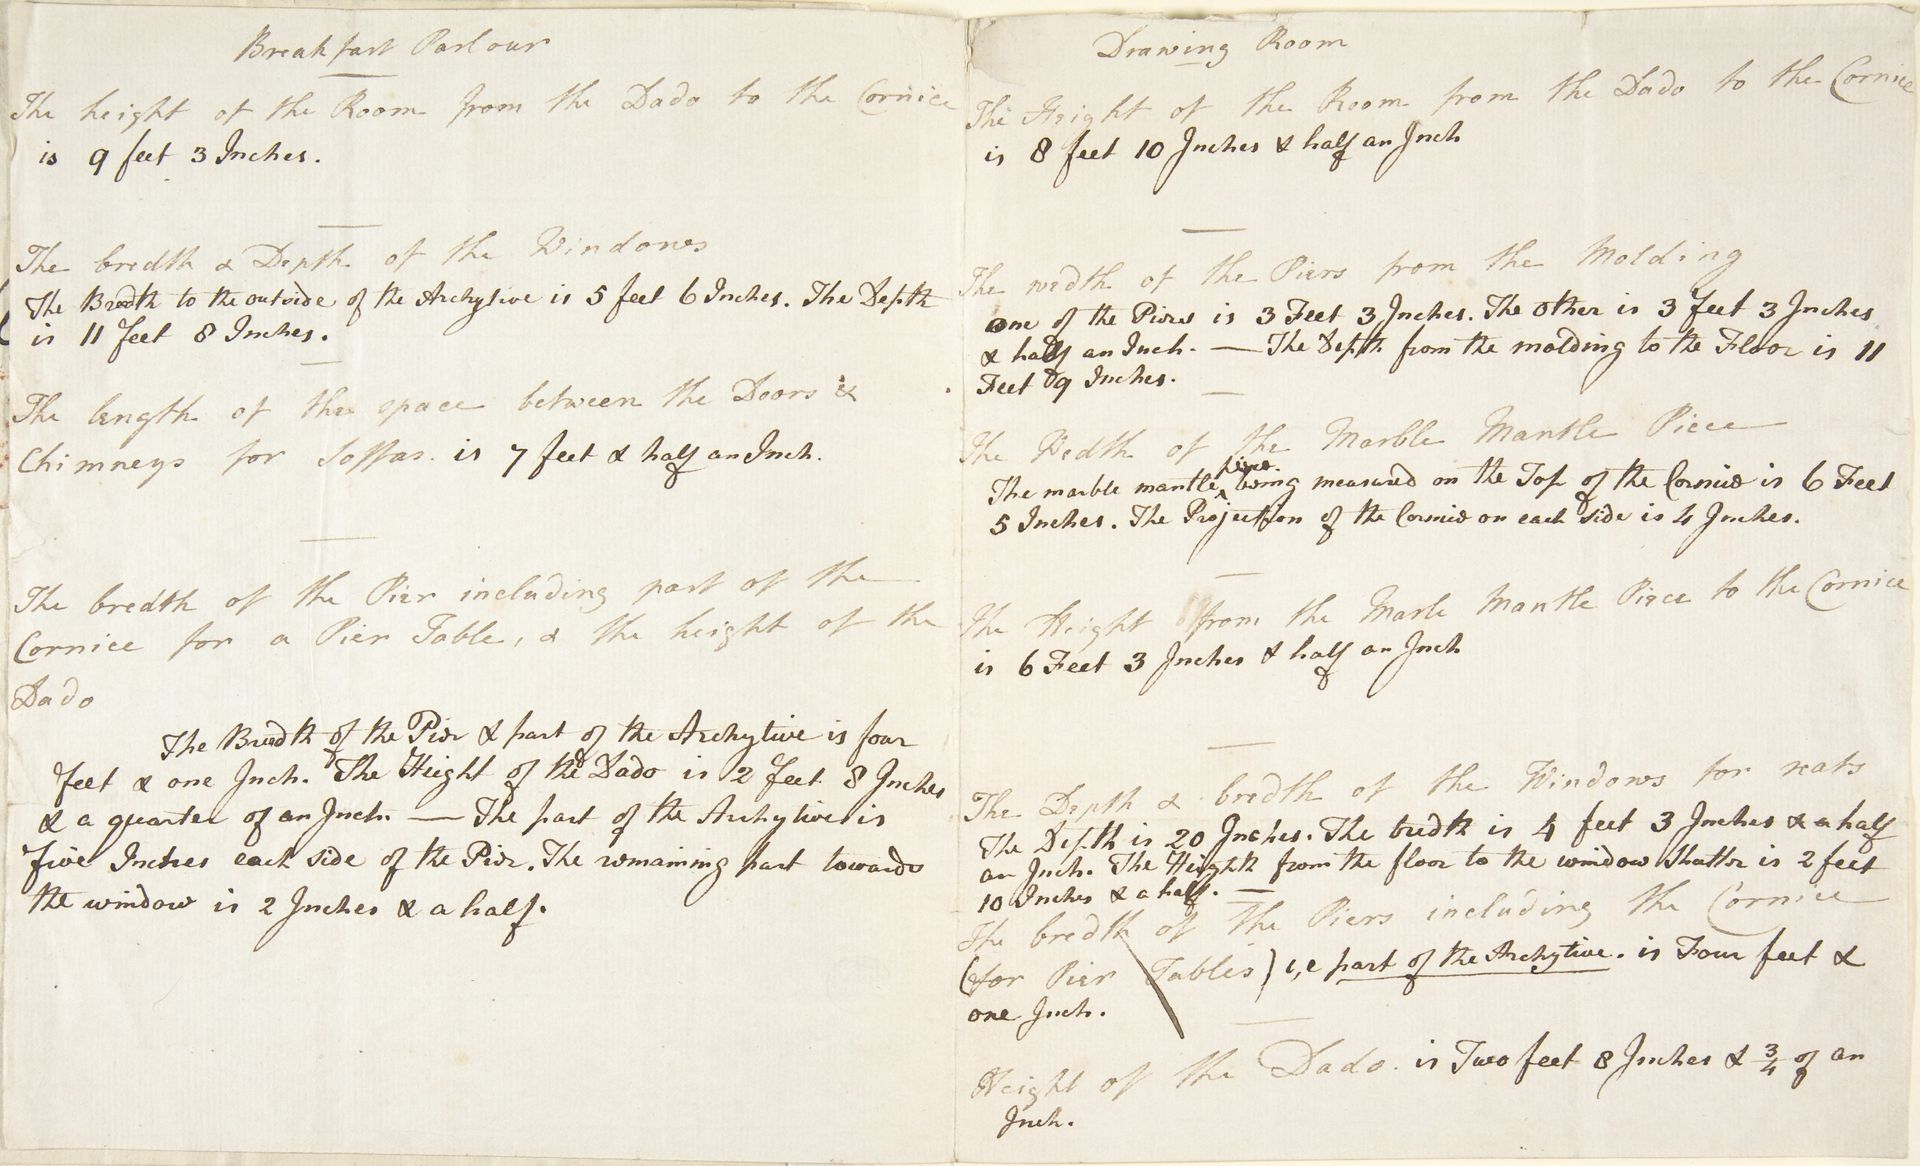 Breakfast Parlour
The height of the Room from the Dado to the Cornice
is 9 feet 3 Inches.
The bredth & Depth of the Windows
The Bredth to the outside of the Archytive is 5 feet 6 Inches. The Depth
is 11 feet 8 Inches.
The length of the space between the Doors &
Chimneys for Soffas. is 7 feet & half an Inch.
The bredth of the Pier including part of the
Cornice for a Pier Table, & the height of the
Dado
The Bredth of the Pier & part of the Archytive is four
feet & one Inch. The Height of the Dado is 2 feet 8 Inches
& a quarter of an Inch. — The part of the Archytive is
five Inches each side of the Pier. The remaining part towards
the window is 2 Inches & a half.
Drawing Room
The Height of the Room from the Dado to the Cornice
is 8 feet 10 Inches & half an Inch
The width of the Piers from the Molding
one of the Piers is 3 Feet 3 Inches. The other is 3 feet 3 Inches
& half an Inch. — The Depth from the molding to the Floor is 11
Feet 9 Inches.
The Wedth of the Marble Mantle Piece
The marble mantle piece being measured on the Top of the Cornice is 6 Feet
5 Inches. The Projection of the Cornice on each side is 4 Inches.
The Height from the Marle Mantle Piece to the Cornice
is 6 Feet 3 Inches & half an Inch
The Depth & bredth of the Windows for seats
The Depth is 20 Inches. The bredth is 4 feet 3 Inches & a half
an Inch. The Height from the floor to the window Shutter is 2 feet
10 Inches & a half. —
The bredth of the Piers including the Cornice
(for Pier Tables) i,e part of the Archytive. is Four feet &
one Inch.
Height of the Dado. is Two feet 8 Inches & 3/4 of an
Inch.